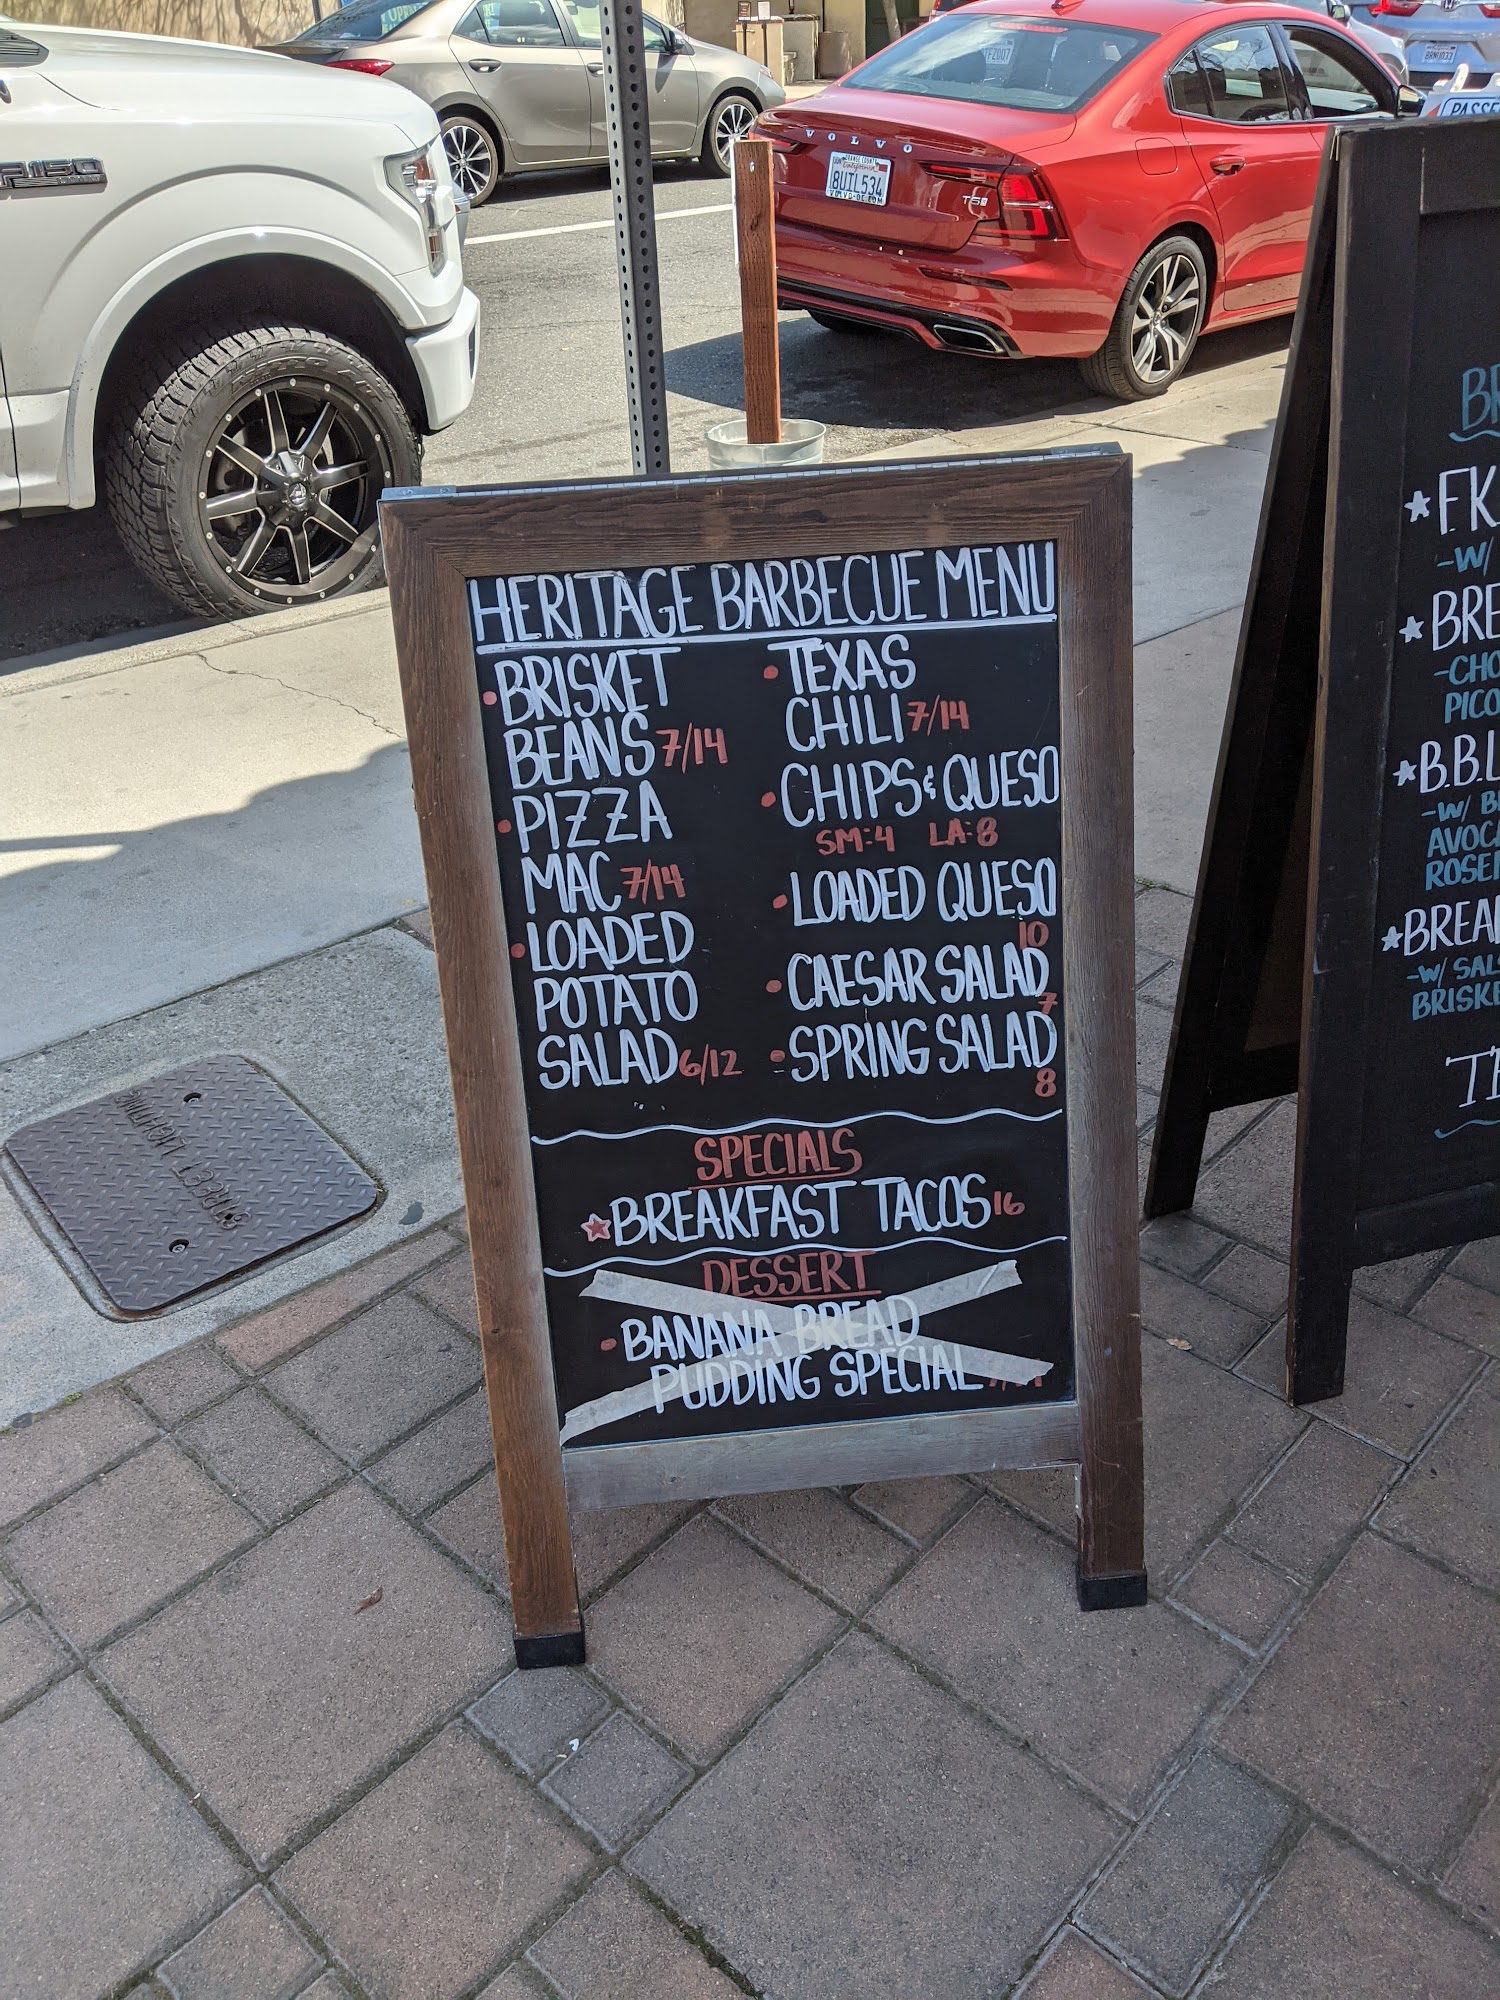 HERITAGE BARBECUE MENU
• BRISKET
BEANS 7/14
• PIZZA
MAC 7/14
• LOADED
POTATO
SALAD 6/12
• TEXAS
CHILI 7/14
• CHIPS & QUESO
SM:4 LA:8
• LOADED QUESO
10
• CAESAR SALAD
7
• SPRING SALAD
8
SPECIALS
BREAKFAST TACOS 16
DESSERT
• BANANA BREAD
PUDDING SPECIAL
F150
VOLVO
ORANGE COUNTY
California
8UIL534
T5
STREET LIGHTING
PASSE
-W/
-CHO
PICO
B.B.
-W/ B
AVOC
ROSE
BREA
-W/ SAL
BRISKE